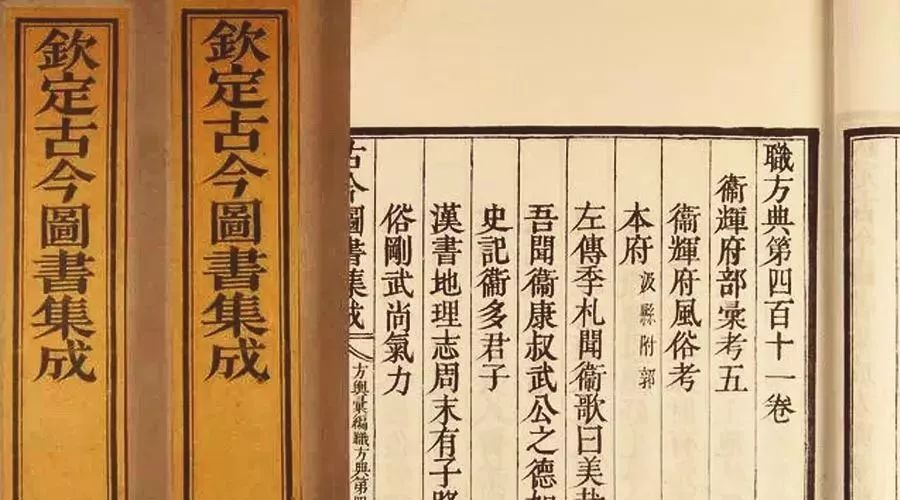 欽定古今圖書集成
欽定古今圖書集成
職方典第四百十一卷
衞輝府部彙考五
衞輝府風俗考
本府 汲縣附郭
左傳季札聞衞歌曰美哉
吾聞衞康叔武公之德如
史記衞多君子
漢書地理志周末有子路
俗剛武尚氣力
古今圖書集成 方輿彙編職方典第四